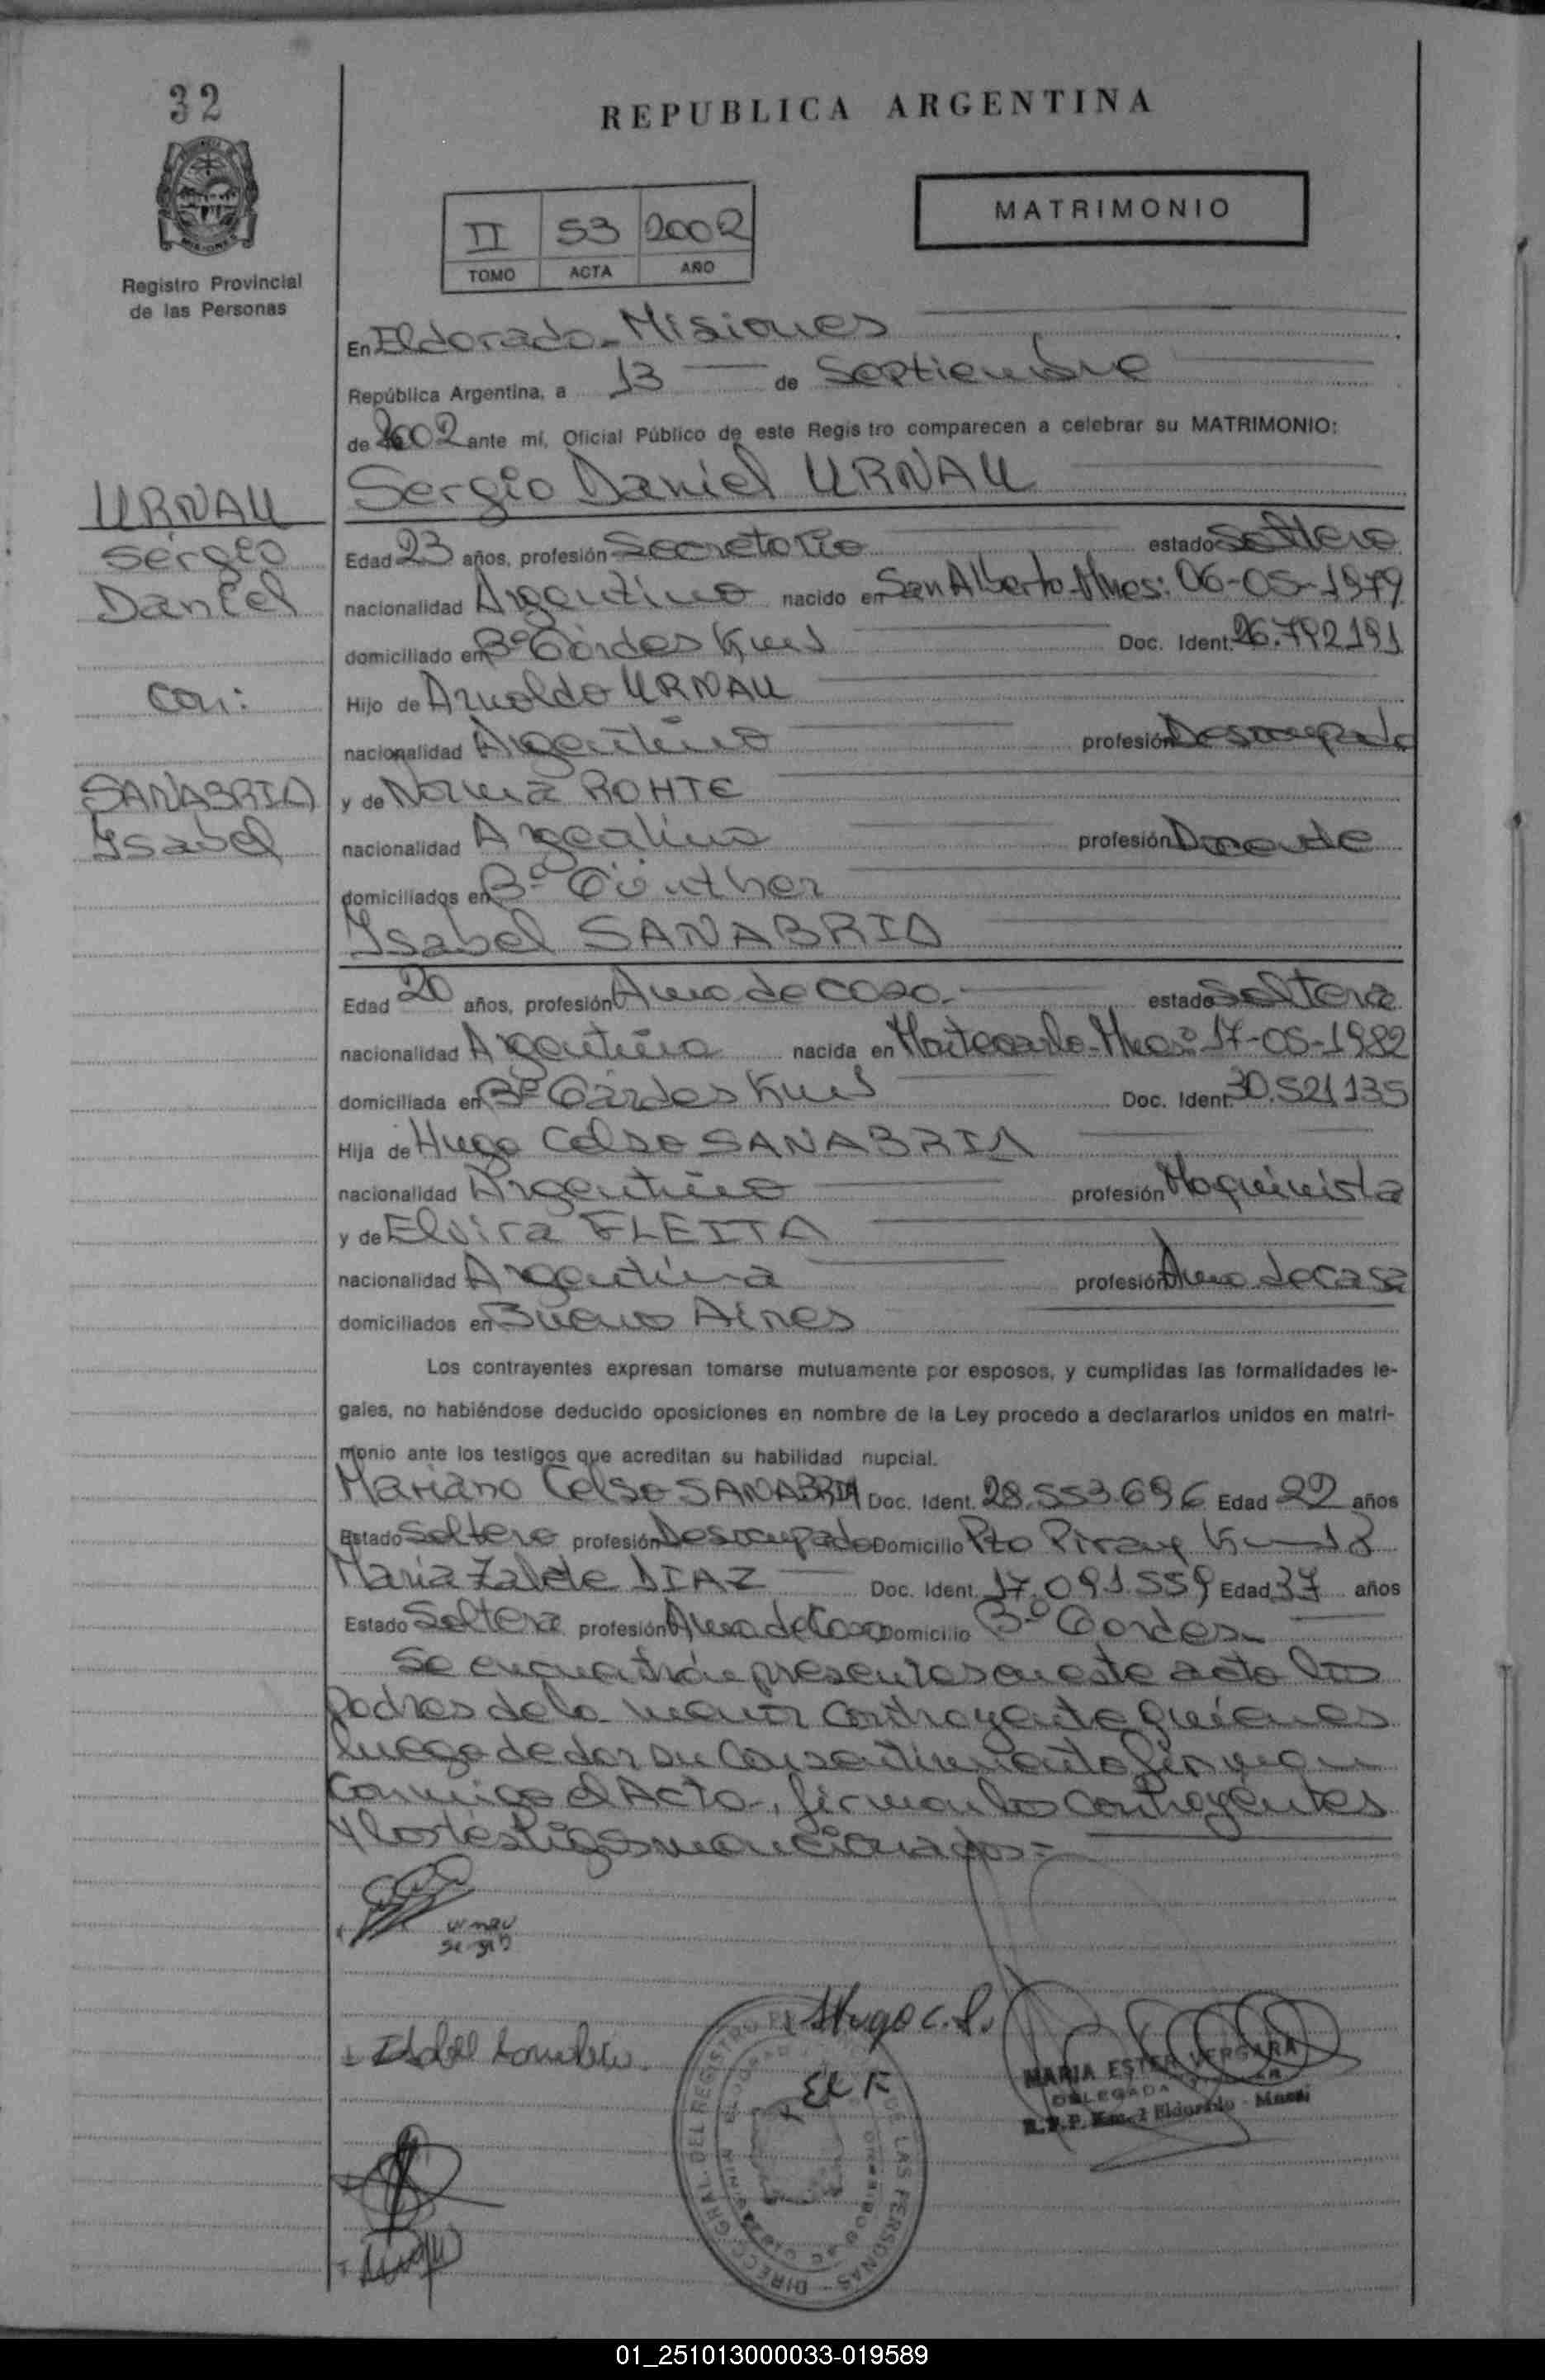 32
REPUBLICA ARGENTINA
MATRIMONIO
II 53 2002
TOMO ACTA AÑO
MISIONES
Registro Provincial
de las Personas
En Eldorado - Misiones
República Argentina, a 13 de Septiembre
de 2002 ante mí, Oficial Público de este Regis tro comparecen a celebrar su MATRIMONIO:
Sergio Daniel URNAU
URNAU
Sergio
Daniel
con:
SANABRIA
Isabel
Edad 23 años, profesión Secretario estado Soltero
nacionalidad Argentino nacido en San Alberto - Mnes: 06-05-1979
domiciliado en Bº Gardes Doc. Ident. 26.792.191
Hijo de Arnoldo URNAU
nacionalidad Argentino profesión Desocupado
y de Norma ROHTE
nacionalidad Argentina profesión Docente
domiciliados en Bº Günther
Isabel SANABRIA
Edad 20 años, profesión Ama de casa.- estado Soltera
nacionalidad Argentina nacida en Montecarlo - Mnes: 17-05-1982
domiciliada en Bº Gardes Doc. Ident. 30.521.135
Hija de Hugo Celso SANABRIA
nacionalidad Argentino profesión Maquinista
y de Elvira FLEITA
nacionalidad Argentina profesión Ama de casa
domiciliados en Buenos Aires
Los contrayentes expresan tomarse mutuamente por esposos, y cumplidas las formalidades le-
gales, no habiéndose deducido oposiciones en nombre de la Ley procedo a declararlos unidos en matri-
monio ante los testigos que acreditan su habilidad nupcial.
Mariano Celso SANABRIA Doc. Ident. 28.553.696 Edad 22 años
Estado Soltero profesión Desocupado Domicilio Pto Piray Km 18
Maria Zalete DIAZ Doc. Ident. 17.091.559 Edad 37 años
Estado Soltera profesión Ama de Casa Domicilio Bº Gardes
Se encuentran presentes en este acto los
padres de la menor contrayente quienes
luego de dar su consentimiento firman
conmigo el Acta, firman los contrayentes
y los testigos mencionados=
urnau
sergio
Hugo C. S.
Isabel Sanabria
El F
MARIA ESTER VERGARA
DELEGADA TITULAR
R.P.P. Km. 2 Eldorado - Mnes.
DIRECC. GRAL. DEL REGISTRO PROVINCIAL DE LAS PERSONAS
01_251013000033-019589